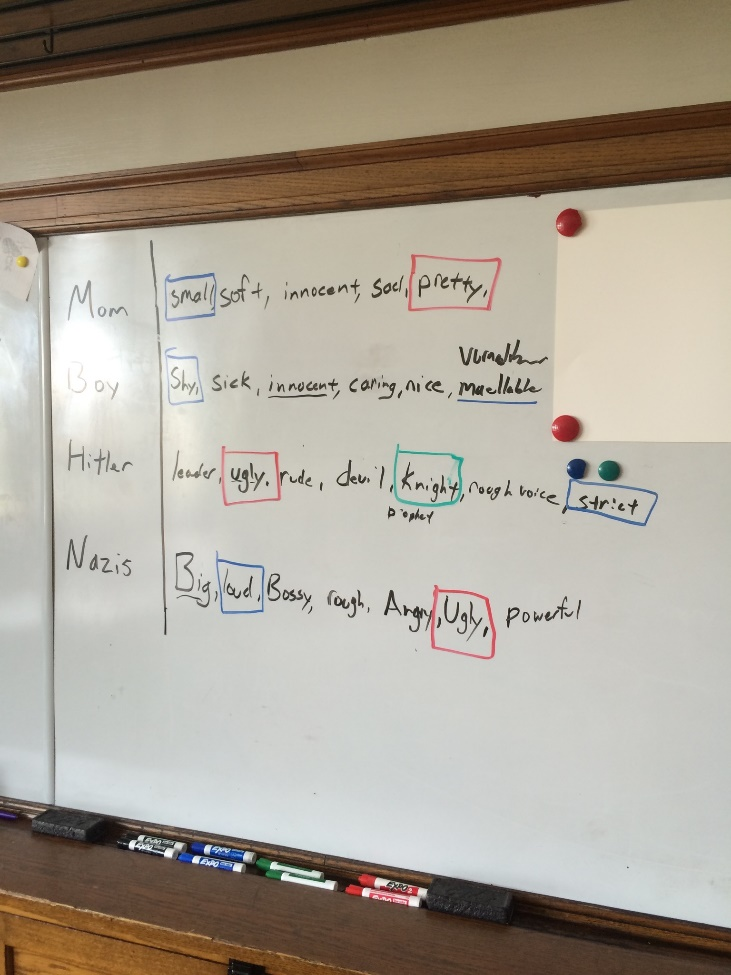 Mom small soft, innocent, sad, pretty,
Boy Shy, sick, innocent, caring, nice, maellable
Hitler leader, ugly, rude, devil, knight, rough voice, strict
Nazis Big, loud, Bossy, rough, Angry, Ugly, powerful
EXPO
EXPO
EXPO
EXPO